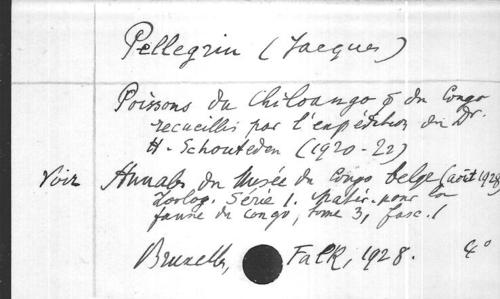 Pellegrin (Jacques)
Poissons du Chiloango & du Congo
recueillis par l'expédition du Dr.
H. Schouteden (1920-22)
Voir Annales du Musée du Congo belge (août 1928)
Zoolog. Série 1. Matér. pour la
faune du Congo, tome 3, fasc. 1
Bruxelles, Falk, 1928. 4°